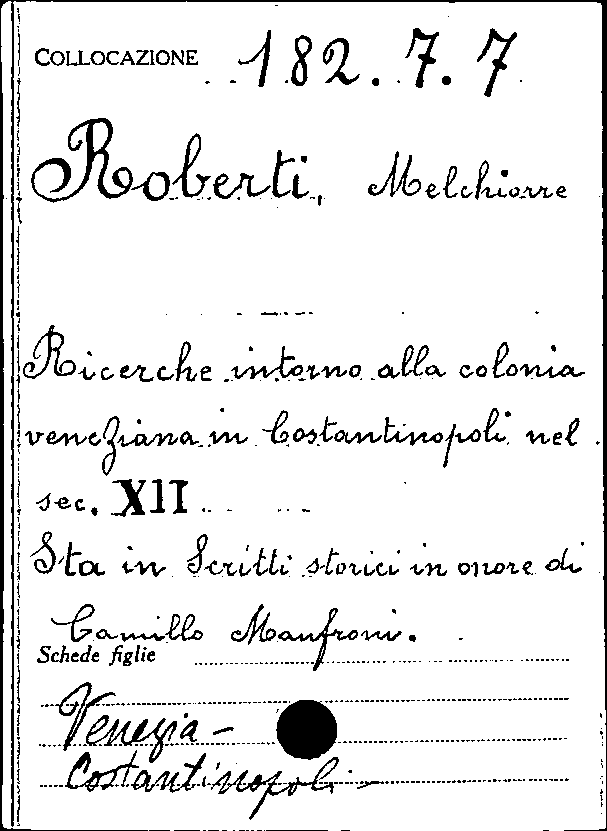 COLLOCAZIONE 182.7.7
Roberti, Melchiorre
Ricerche intorno alla colonia
veneziana in Costantinopoli nel
sec. XII
Sta in Scritti storici in onore di
Camillo Manfroni.
Schede figlie
Venezia -
Costantinopoli -